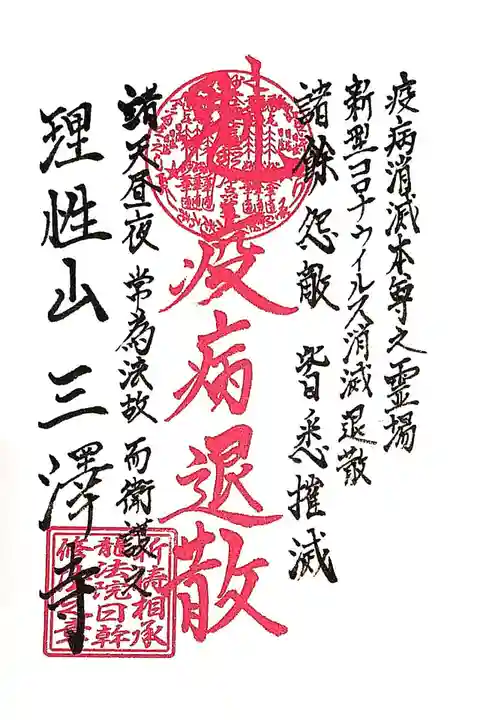 疫病消滅本尊之霊場
新型コロナウイルス消滅退散
諸餘怨敵 皆悉摧滅
疫病退散
諸天昼夜 常為法故 而衛護之
理性山 三澤寺
祈祷相承
龍法院日幹